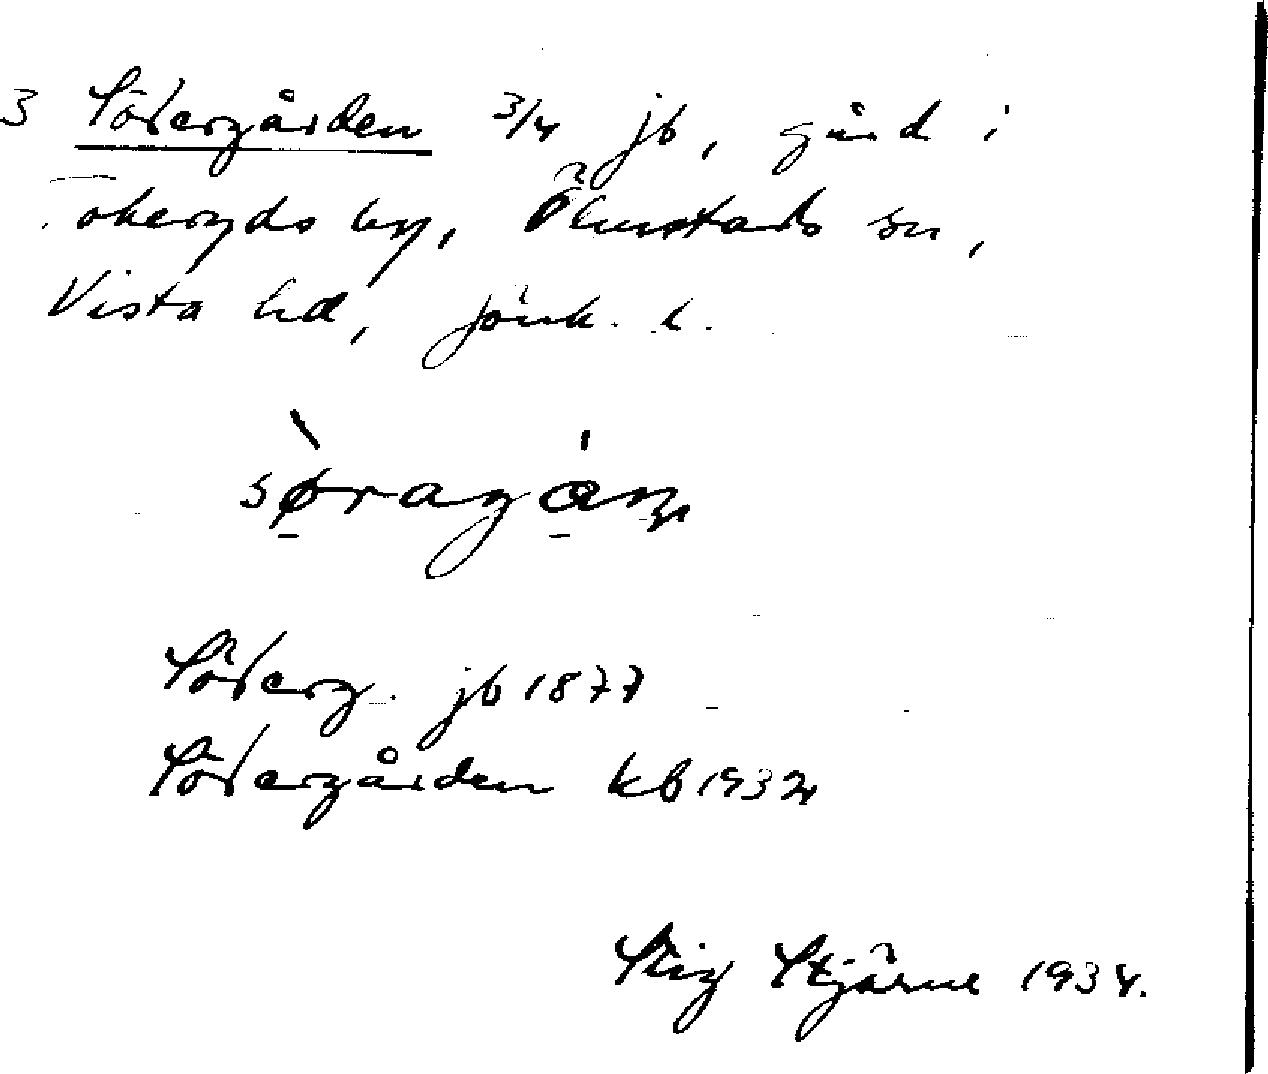 3 Södergården 3/4 jb, gård i
okeryds by, Ölmstads sn,
Vista hd, Jönk. l.
söragån
Söderg. jb 1877
Södergården kb 1932
Stig Stjärne 1934.